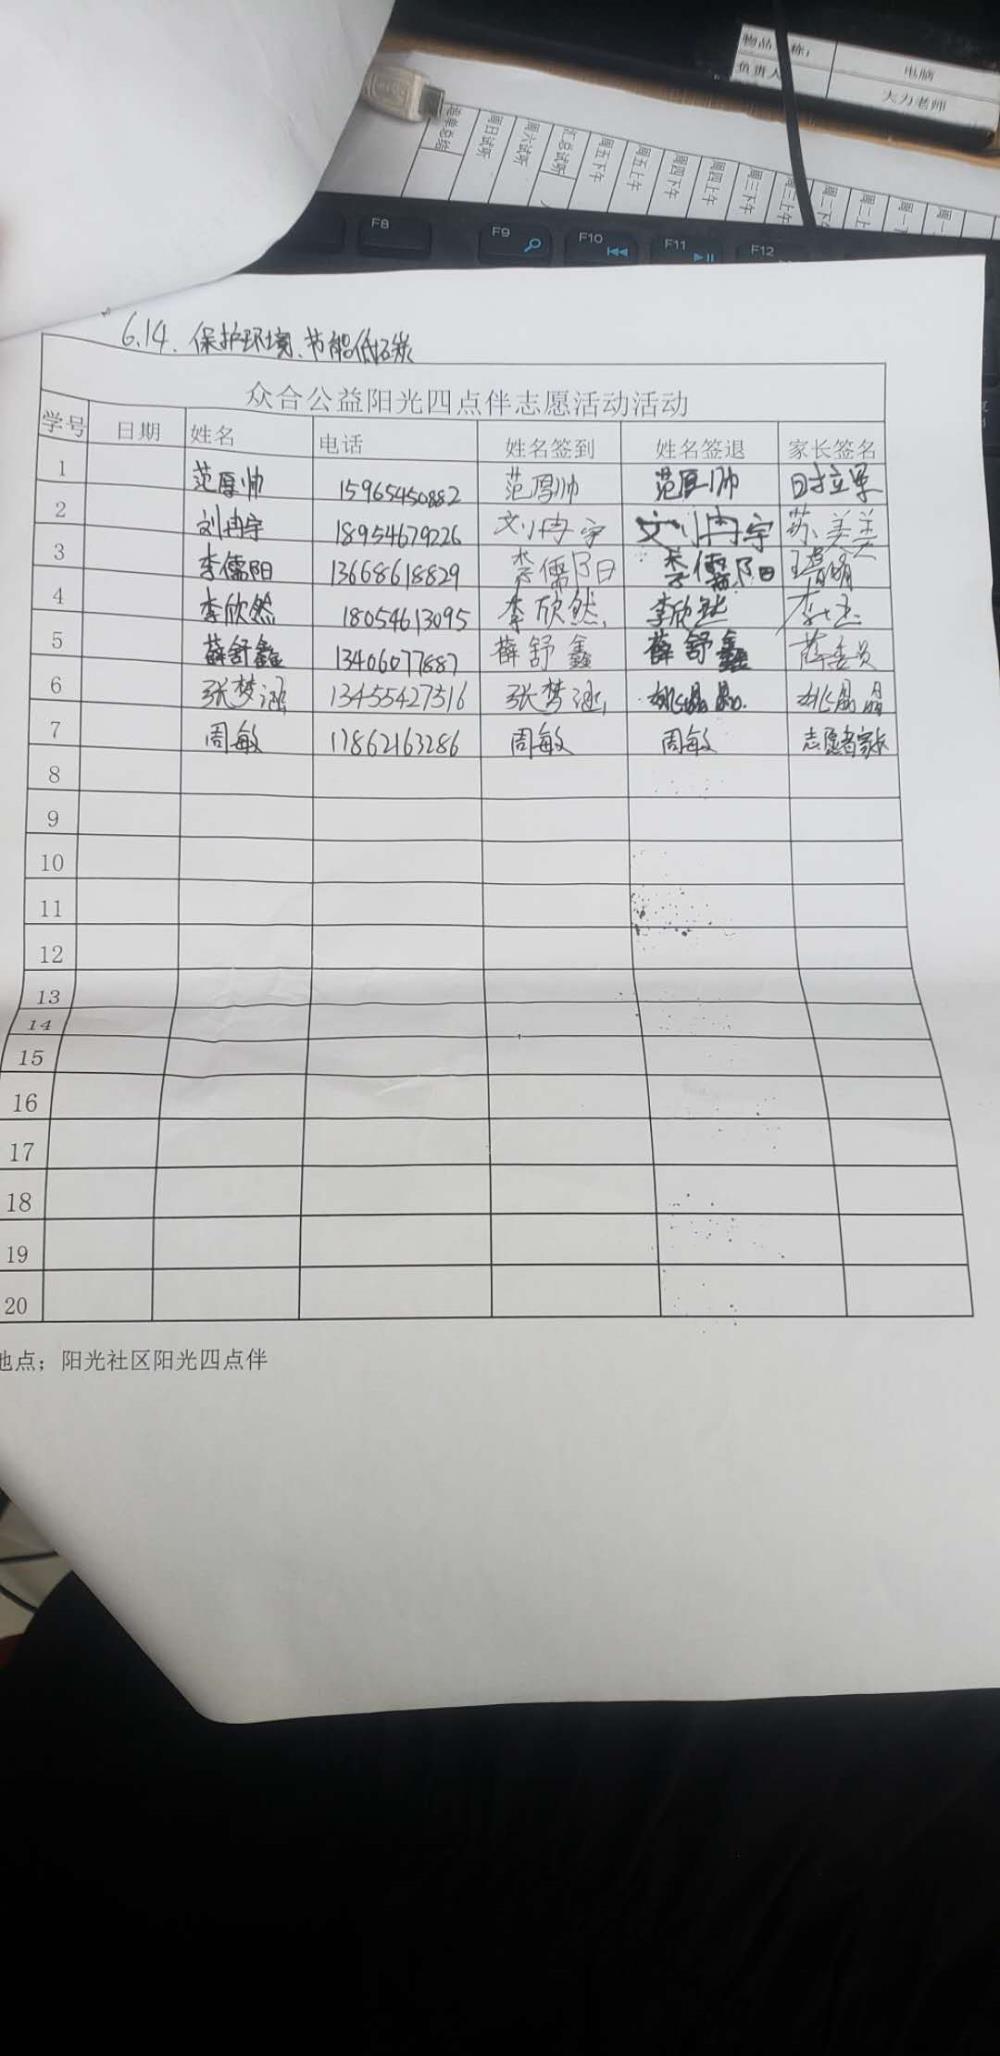 物品名称： 电脑
负责人 大力老师
周日试听 周六试听 汇总试听 周五下午 周五上午 周四下午 周四上午 周三下午 周三上午
F8 F9 F10 F11 F12
6.14. 保护环境、节能低碳
众合公益阳光四点伴志愿活动活动
学号 日期 姓名 电话 姓名签到 姓名签退 家长签名
1 范厚帅 15965450882 范厚帅 范厚帅
2 刘冉宇 18954679226 刘冉宇 刘冉宇 苏美美
3 李儒阳 13668618829 李儒阳 李儒阳
4 李欣然 18054613095 李欣然 李欣然
5 薛舒鑫 13406077887 薛舒鑫 薛舒鑫
6 张梦涵 13455427516 张梦涵 姚晶晶
7 周敏 17862163286 周敏 周敏 志愿者家长
8
9
10
11
12
13
14
15
16
17
18
19
20
地点；阳光社区阳光四点伴